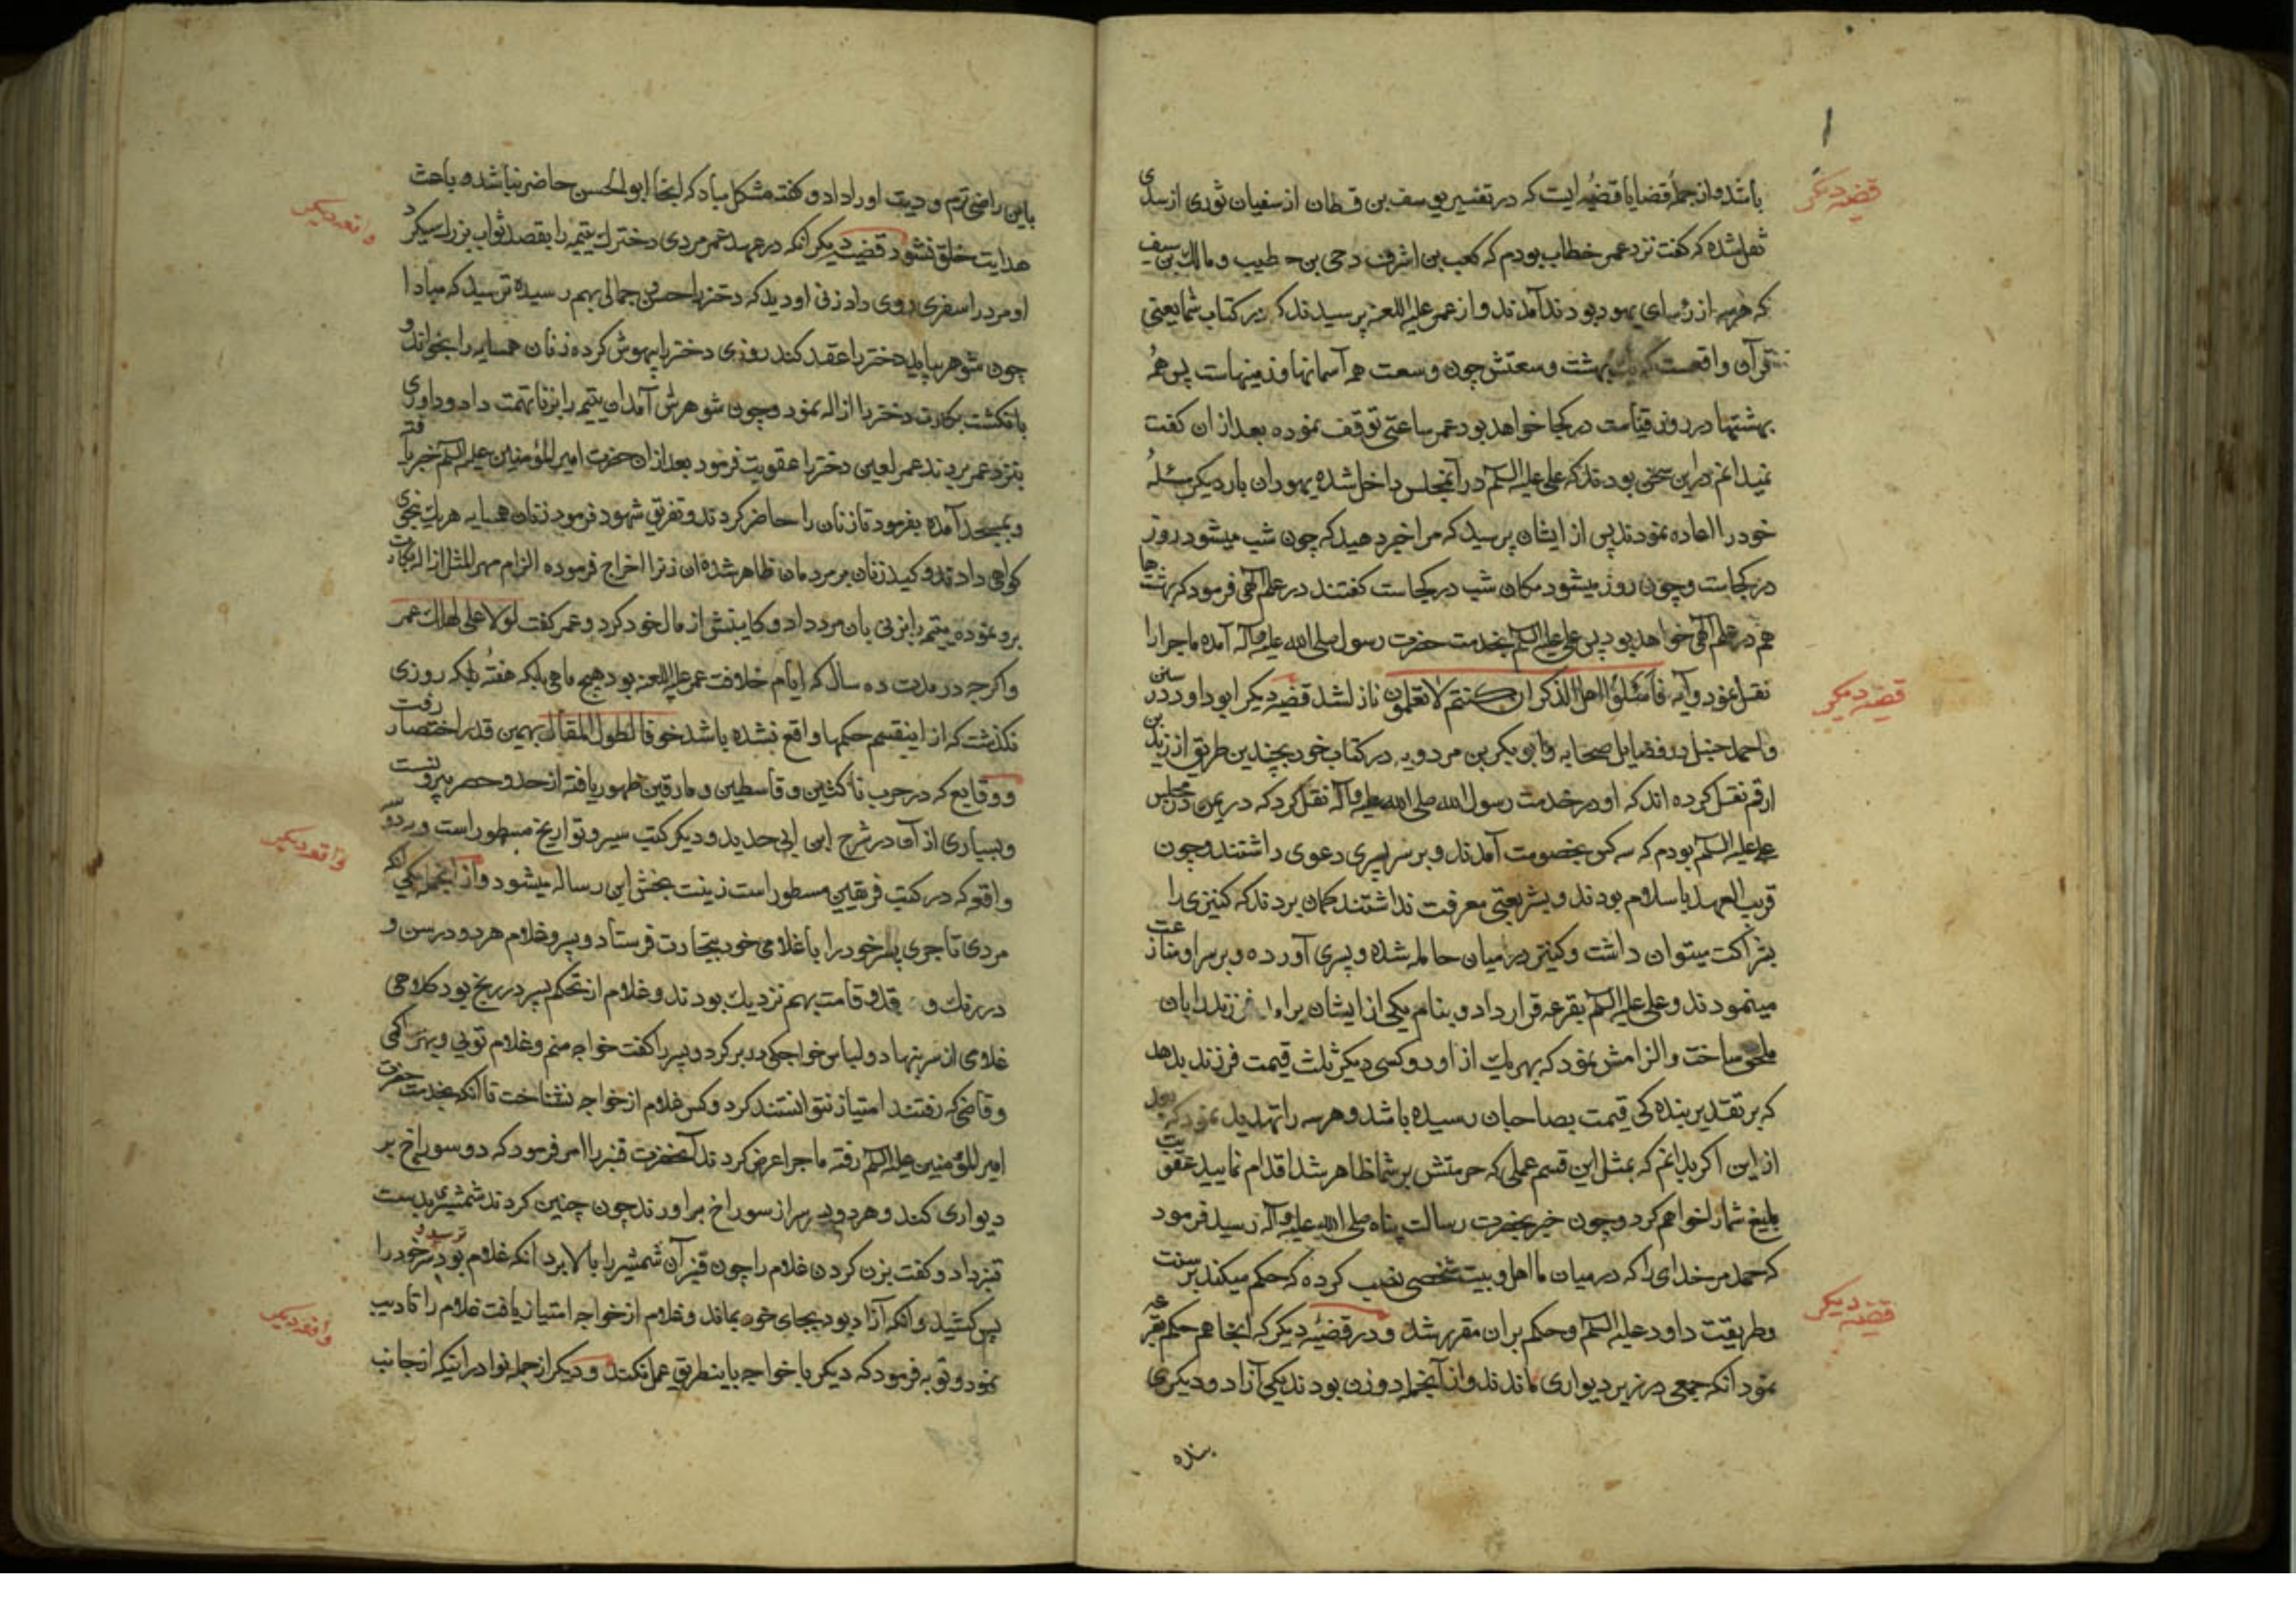 باشد و از جمله قضایا قضیه ایست که در تفسیر یوسف بن قطان از سفیان ثوری از سدی
نقل شده که گفت نزد عمر خطاب بودم که کعب بن اشرف و حی بن خطیب و مالک بن سیف
که هر سه از رؤسای یهود بودند آمدند و از عمر علیه اللعنه پرسیدند که در کتاب شما یعنی
قرآن واقعست که یک بهشت وسعتش چون وسعت همه آسمانها و زمینهاست پس همه
بهشتها در روز قیامت در کجا خواهد بود عمر ساعتی توقف نموده بعد از ان گفت
نمیدانم در این سخن بودند که علی علیه السلم در آنمجلس داخل شده یهودان بار دیگر مسئله
خود را اعاده نمودند پس از ایشان پرسید که مرا خبر دهید که چون شب میشود روز
در کجاست و چون روز میشود مکان شب در کجاست گفتند در علم الهی فرمود که بهشتها
هم در علم الهی خواهد بود پس علی علیه السلم بخدمت حضرت رسول صلی الله علیه و آله آمده ماجرا را
نقل نمود و آیه فاسئلوا اهل الذکر ان کنتم لا تعلمون نازل شد قضیه دیگر ابو داود در سنن
و احمد حنبل در فضایل صحابه و ابو بکر بن مردویه در کتاب خود بچندین طریق از زید بن
ارقم نقل کرده اند که او در خدمت رسول الله صلی الله علیه و آله نقل کرد که در یمن در مجلس
علی علیه السلم بودم که سه کس بخصومت آمدند و بر سر پسری دعوی داشتند و چون
قریب العهد باسلام بودند و بشریعتی معرفت نداشتند گمان بردند که کنیزی را
بشراکت میتوان داشت و کنیز در میان حامله شده و پسری آورده و بر سر او منازعت
مینمودند و علی علیه السلم بقرعه قرار داد و بنام یکی از ایشان برامد فرزند را بان
ملحق ساخت و الزامش نمود که بهر یک از او دو کس دیگر ثلث قیمت فرزند بدهد
که بر تقدیر بنده کی قیمت بصاحبان رسیده باشد و هر سه را تهدید نمود که بعد
از این اگر بدانم که بمثل این قسم عملی که حرمتش بر شما ظاهر شد اقدام نمایید عقوبت
بلیغ شما را خواهم کرد و چون خبر بحضرت رسالت پناه صلی الله علیه و آله رسید فرمود
که حمد مر خدای را که در میان ما اهل و بیت شخصی نصب کرده که حکم میکند بر سنت
و طریقت داود علیه السلم و حکم بران مقرر شد و در قضیه دیگر که اینجا هم حکم بقرعه
نمود آنکه جمعی در زیر دیواری ماندند و از آنجمله دو زن بودند یکی آزاد و دیگری
بنده
قضیه دیگر
قضیه دیگر
قضیه دیگر
باین راضی ترم و دیت او را داد و گفته مشکل مباد که اینجا ابو الحسن حاضر نباشد و باعث
هدایت خلق نشود قضیه دیگر انکه در عهد عمر مردی دخترک یتیمه را بقصد ثواب بزرگ میکرد
او مرد را سفری روی داد زنی او دید که دختر را حسن و جمالی بهم رسیده ترسید که مبادا
چون شوهر بیاید دختر را عقد کند روزی دختر را بیهوش کرده زنان همسایه را بخواند و
بانگشت بکارت دختر را ازاله نمود و چون شوهرش آمد ان یتیم را بزنا تهمت داد و داوری
بنزد عمر بردند عمر لعین دختر را عقوبت فرمود بعد از ان حضرت امیر المؤمنین علیه السلم خبر یافته
و بمسجد آمده بفرمود تا زنان را حاضر کردند و تفریق شهود فرمود زنان همسایه هر یک بنحوی
گواهی دادند و کید زنان بر مردمان ظاهر شده ان زنرا اخراج فرموده الزام مهر المثل ازاله بکارت
برو نموده یتیمه را بزنی بان مرد داد و کابینش از مال خود کرد و عمر گفت لولا علی لهلک عمر
و اگرچه در مدت ده سال که ایام خلافت عمر علیه اللعنه بود هیچ ماهی بلکه هفته بلکه روزی
نگذشت که از اینقسم حکمها واقع نشده باشد خوفا لطول المقال بهمین قدر اختصار رفت
و وقایع که در حرب ناکثین و قاسطین و مارقین ظهور یافته از حد و حصر بیرونست
و بسیاری از آن در شرح ابن ابی حدید و دیگر کتب سیر و تواریخ مسطور است و بر دو سه
واقعه که در کتب فریقین مسطور است زینت بخش این رساله میشود و از انجمله یکی انکه
مردی تاجری پسر خود را با غلامی خود بتجارت فرستاد و پسر و غلام هر دو در سن و
در رنگ و قد و قامت بهم نزدیک بودند و غلام از تحکم پسر در رنج بود کلاهی
غلامی از سر بنهاد و لباس خواجگی در بر کرد و پسر را گفت خواجه منم و غلام تویی و بهر حاکمی
و قاضی که رفتند امتیاز نتوانستند کرد و کس غلام از خواجه نشناخت تا انکه بخدمت حضرت
امیر المؤمنین علیه السلم رفته ماجرا عرض کردند آنحضرت قنبر را امر فرمود که دو سوراخ بر
دیواری کند و هر دو سر از سوراخ براورند چون چنین کردند شمشیری بدست
قنبر داد و گفت بزن گردن غلام را چون قنبر آن شمشیر را بالا برد آنکه غلام بود ترسید و سر خود را
پس کشید و انکه آزاد بود بجای خود بماند و غلام از خواجه امتیاز یافت غلام را تادیب
نمود و توبه فرمود که دیگر با خواجه باینطریق عمل نکند و دیگر از جمله نوادر اینکه از جانب
واقعه دیگر
واقعه دیگر
واقعه دیگر